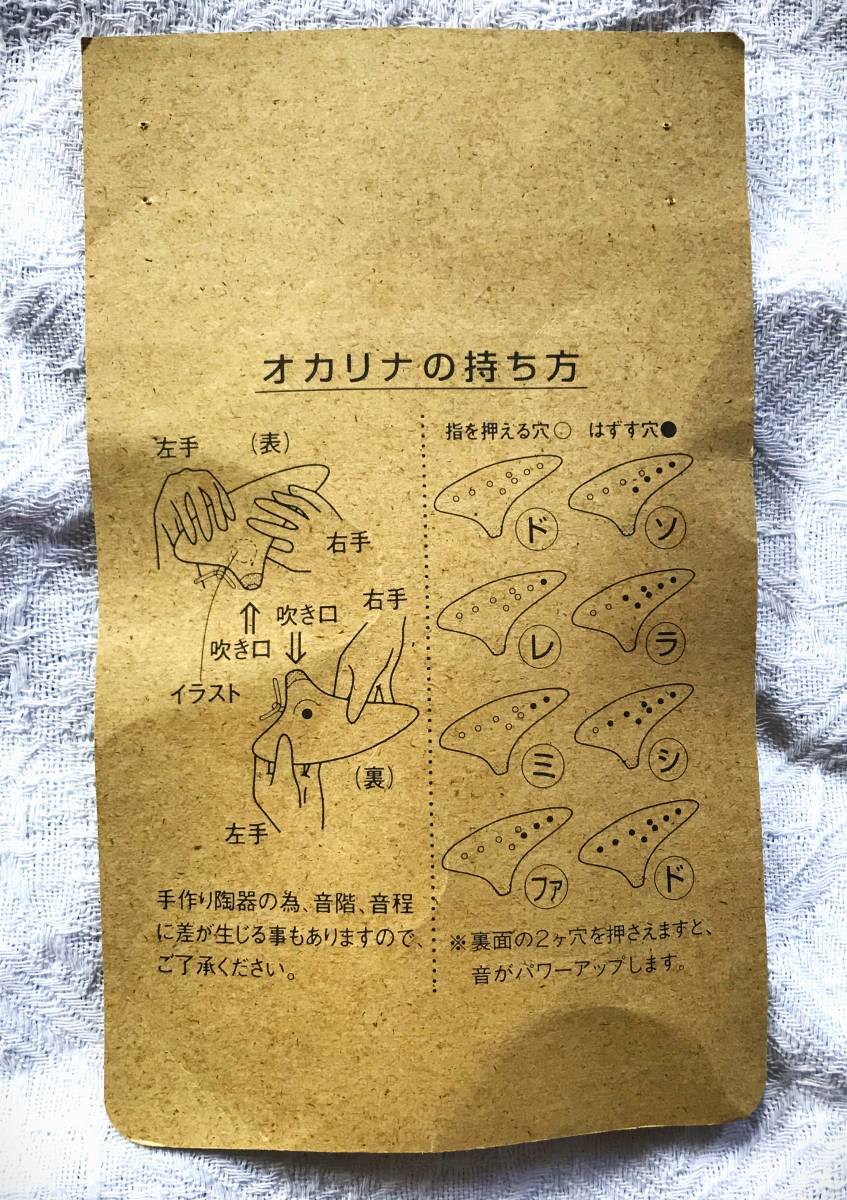 オカリナの持ち方
左手
(表)
右手
吹き口
イラスト
右手
吹き口
(裏)
左手
手作り陶器の為、音階、音程
に差が生じる事もありますので、
ご了承ください。
指を押える穴○ はずす穴●
ド
ソ
レ
ラ
ミ
シ
ファ
ド
※裏面の2ヶ穴を押さえますと、
音がパワーアップします。